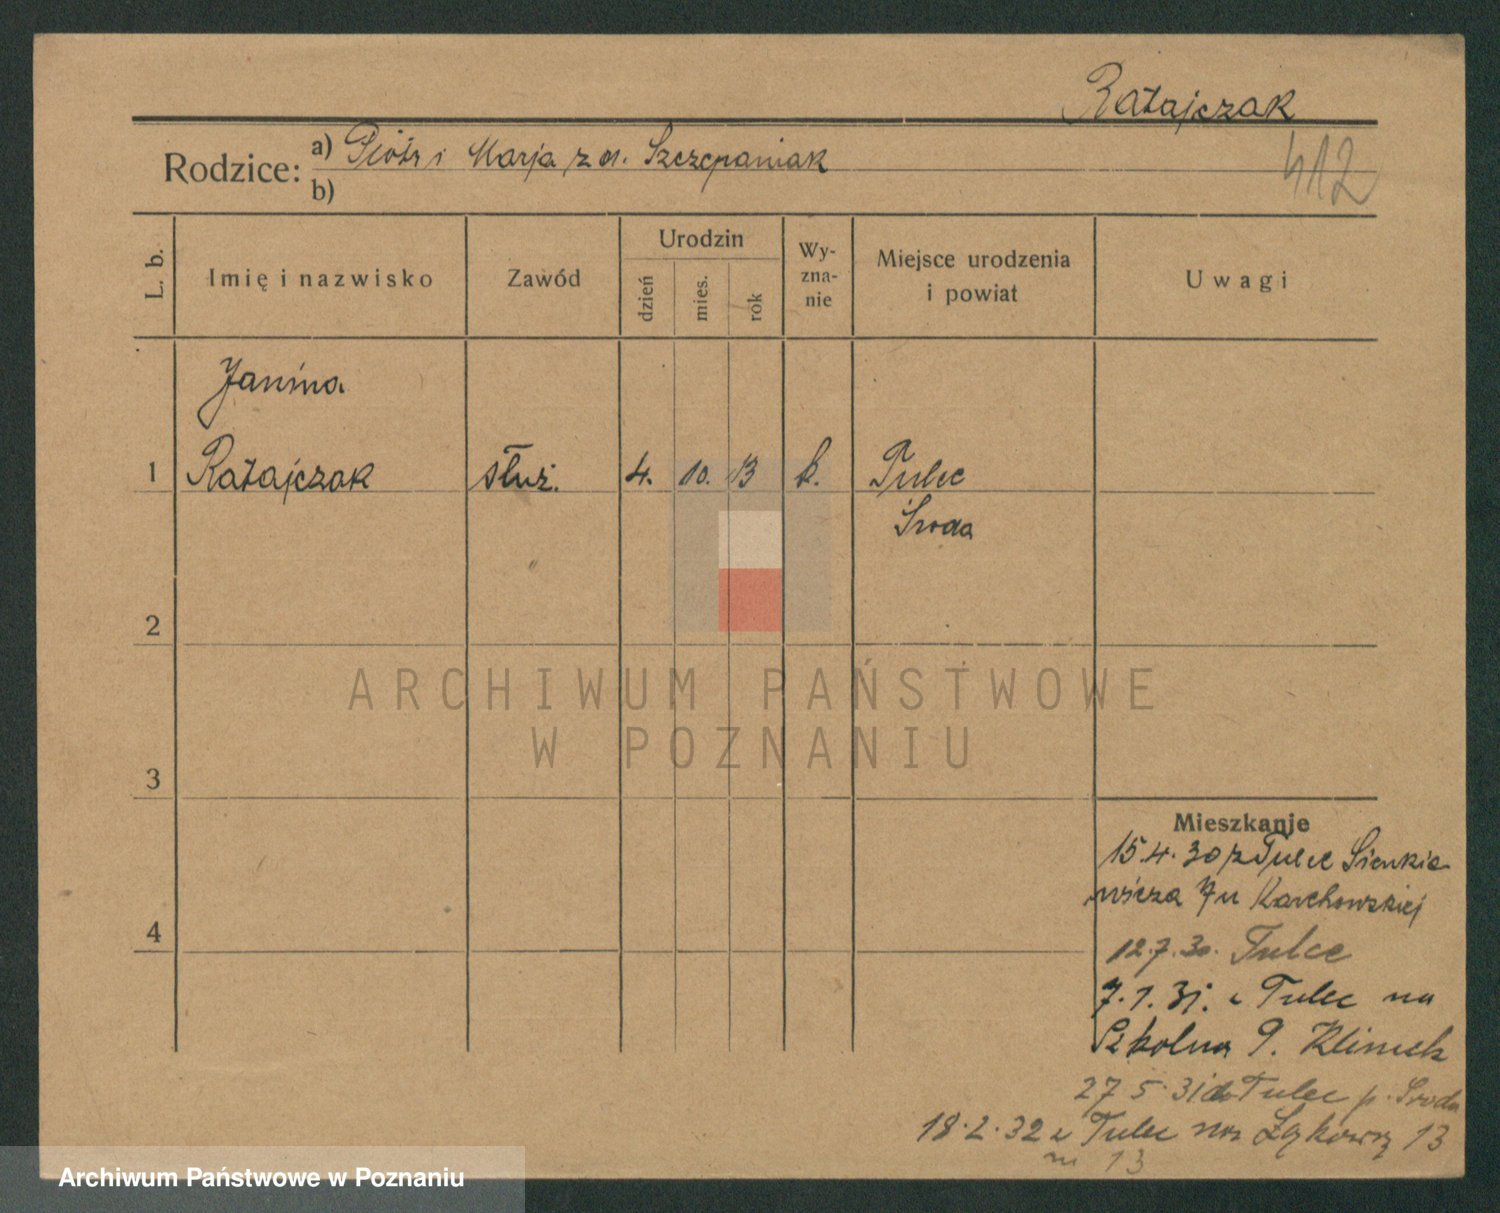 Ratajczak
412
Rodzice: a) Piotr i Marja z d. Szczepaniak
b)
L. b.
Imię i nazwisko
Zawód
Urodzin
dzień
mies.
rok
Wy-
zna-
nie
Miejsce urodzenia
i powiat
Uwagi
Janina
1 Ratajczak służ. 4. 10. 13 k. Tulce
Środa
2
3
4
Mieszkanie
15.4.30 z Tulec Sienkie-
wicza 7 u Karchowskiej
12.7.30. Tulce
7.1.31. z Tulec na
Szkolna 9. Klimek
27 5 31 do Tulec p. Środa
18.2.32 z Tulec na Łąkową 13
m 13
ARCHIWUM PAŃSTWOWE
W POZNANIU
Archiwum Państwowe w Poznaniu